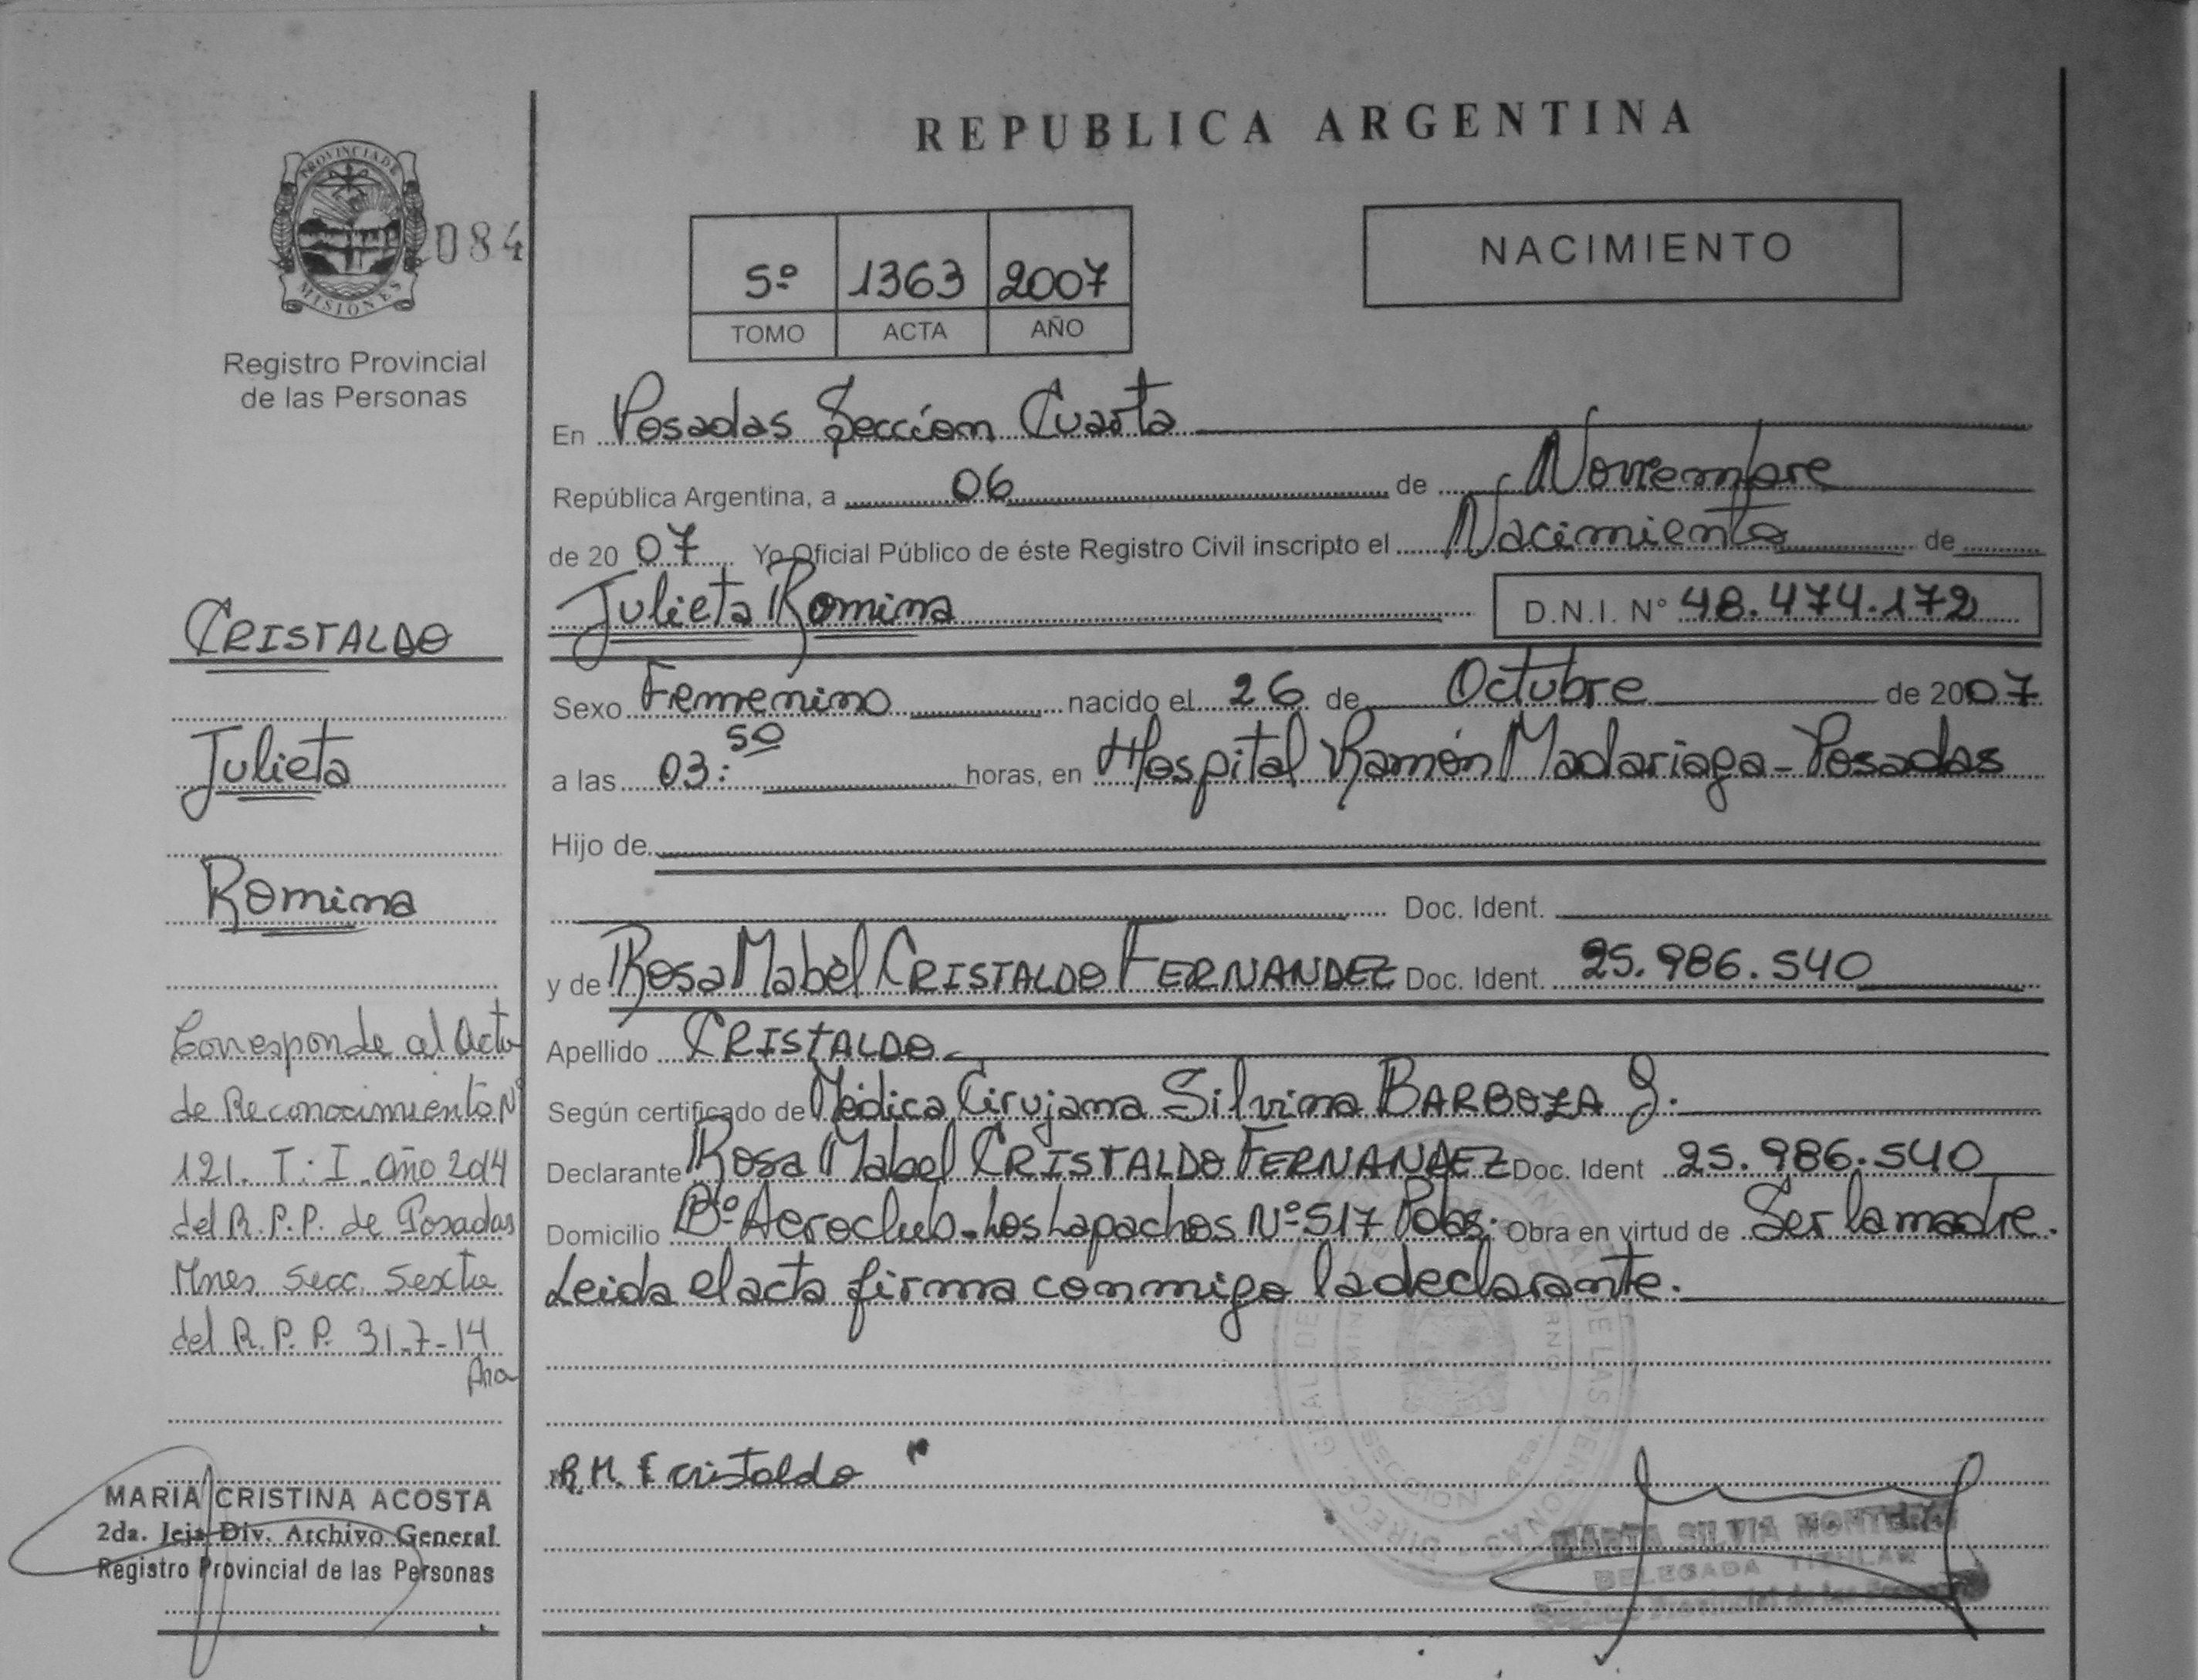 REPUBLICA ARGENTINA
PROVINCIA DE
MISIONES
084
Registro Provincial
de las Personas
5º 1363 2007
TOMO ACTA AÑO
NACIMIENTO
En Posadas Sección Cuarta
República Argentina, a 06 de Noviembre
de 2007 Yo Oficial Público de éste Registro Civil inscripto el Nacimiento de
Julieta Romina D.N.I. Nº 48.474.172
Sexo Femenino nacido el 26 de Octubre de 2007
a las 03:50 horas, en Hospital Ramón Madariaga - Posadas
Hijo de
Doc. Ident.
y de Rosa Mabel CRISTALDO FERNANDEZ Doc. Ident. 25.986.540
Apellido CRISTALDO
Según certificado de Médica Cirujana Silvina BARBOZA J.
Declarante Rosa Mabel CRISTALDO FERNANDEZ Doc. Ident 25.986.540
Domicilio Bº Aeroclub - Los Lapachos Nº 517 Pdas. Obra en virtud de Ser la madre.
Leida el acta firma conmigo la declarante.
R.M. F cristaldo
MARTA SILVIA MONTERO
DELEGADA TITULAR
Registro Provincial de las Personas
CRISTALDO
Julieta
Romina
Corresponde al Acta
de Reconocimiento Nº
121. T: I. año 2014
del R.P.P. de Posadas
Mnes. Secc. Sexta
del R.P.P. 31-7-14
MARIA CRISTINA ACOSTA
2da. Jefa Div. Archivo General
Registro Provincial de las Personas